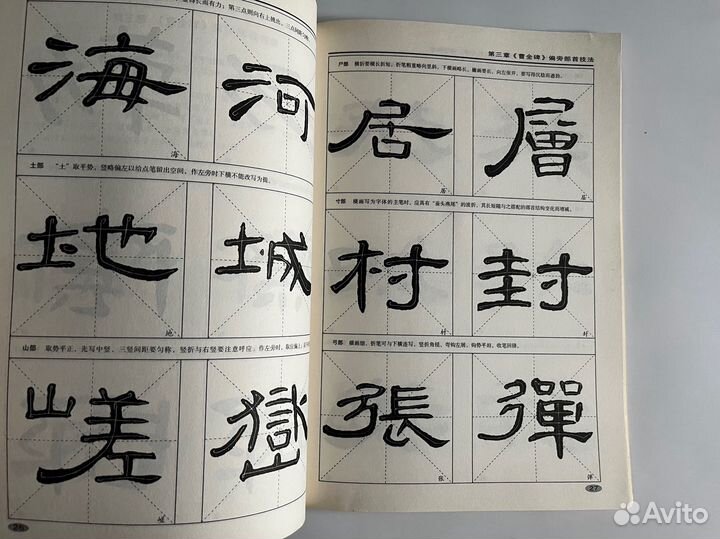 得长而有力；第三点则向右上挑出，三点间距匀称。
海 河
海
土部 “土”取平势，竖略偏左以给点笔留出空间，作左旁时下横不能改写为提。
地 城
地
山部 取势平正，先写中竖，三竖间距要匀称，竖折与右竖要注意呼应。作左旁时，取位偏上
嵯 嶽
嵯
26
第三章《曹全碑》偏旁部首技法
尸部 横折要横长折短，折笔稍重略向里斜，下横画略长，撇画要长，向左张开，要写得沉稳而遒劲。
居 層
居 层
寸部 横画写为字体的主笔时，应具有“蚕头燕尾”的波折，其长短随与之搭配的部首结构变化而增减。
村 封
村 封
弓部 横画细，折笔可与下横连写，竖折角楞，弯钩左展，钩势平出，收笔回锋。
張 彈
张 弹
27
Avito